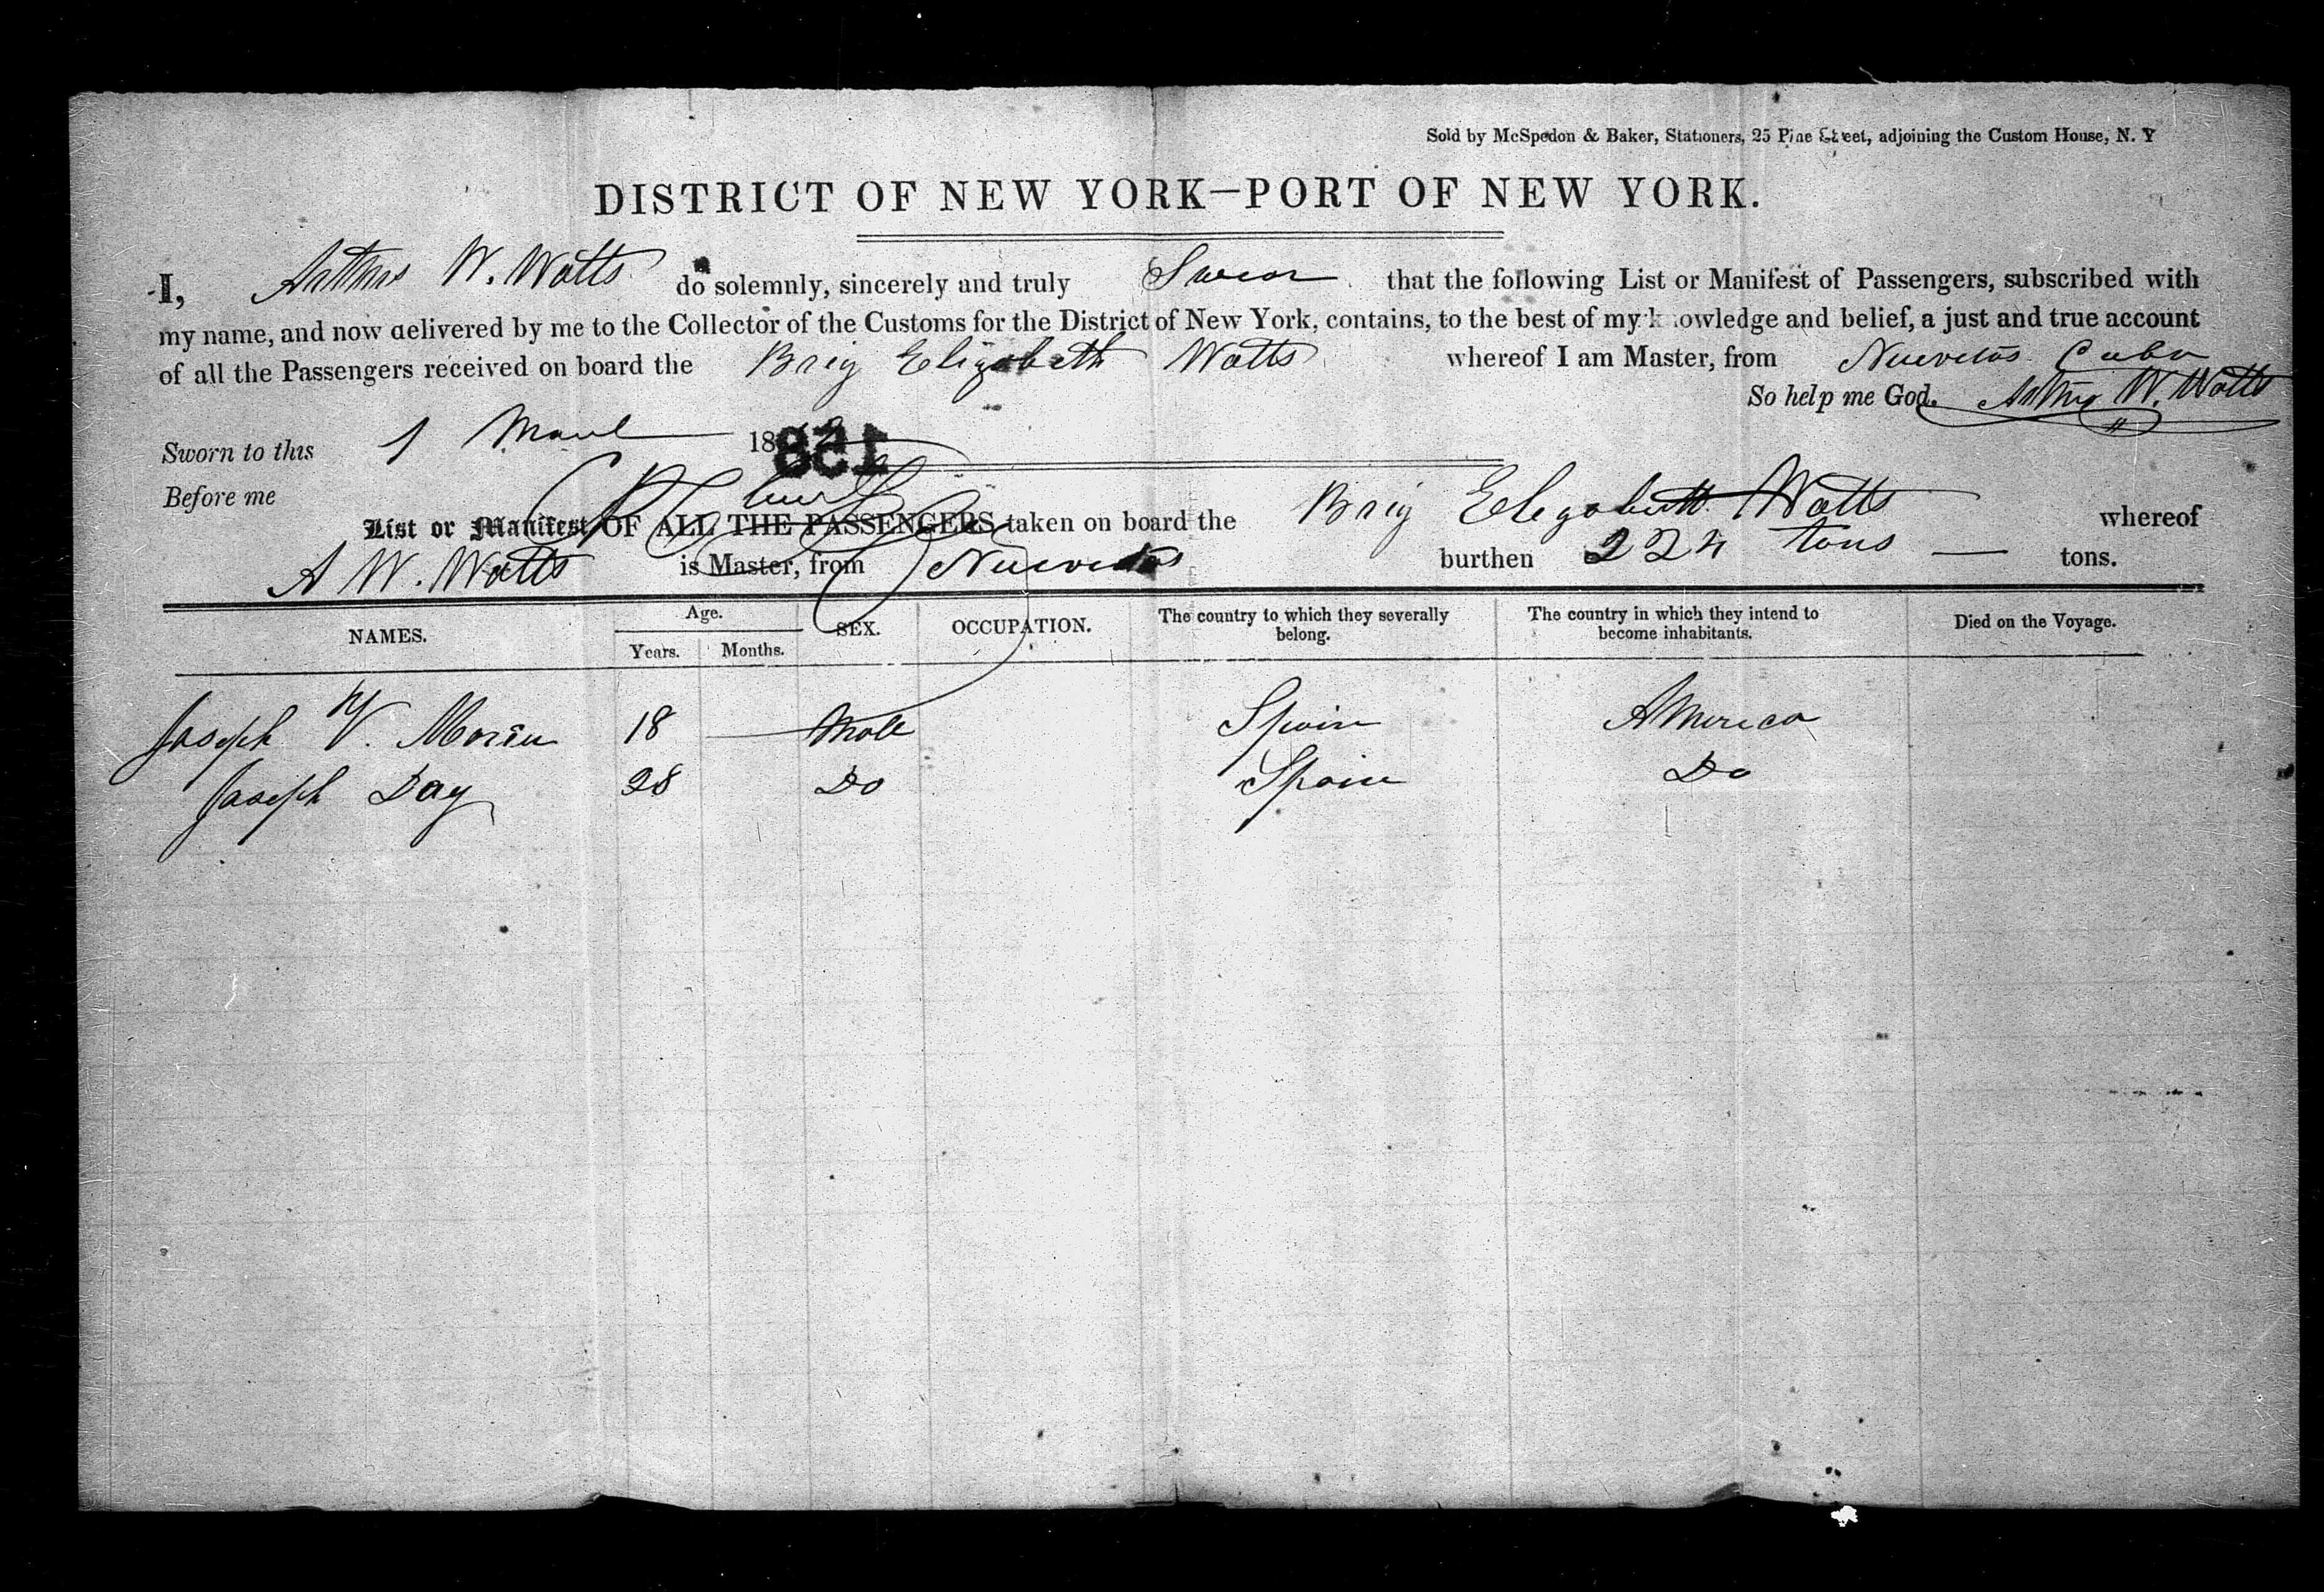 Sold by McSpedon & Baker, Stationers, 25 Pine Street, adjoining the Custom House, N. Y
DISTRICT OF NEW YORK—PORT OF NEW YORK.
I, Arthur W. Watts do solemnly, sincerely and truly Swear that the following List or Manifest of Passengers, subscribed with
my name, and now delivered by me to the Collector of the Customs for the District of New York, contains, to the best of my knowledge and belief, a just and true account
of all the Passengers received on board the Brig Elizabeth Watts whereof I am Master, from Nuevitas Cuba
So help me God. Arthur W. Watts
Sworn to this 1 March 18
158
Before me
List or Manifest OF ALL THE PASSENGERS taken on board the Brig Elezabeth Watts whereof
A W. Watts is Master, from Nuevitas burthen 224 tons — tons.
NAMES. Age. Years. Months. SEX. OCCUPATION. The country to which they severally belong. The country in which they intend to become inhabitants. Died on the Voyage.
Joseph V. 18 Male Spain America
Joseph Day 28 Do Spain Do